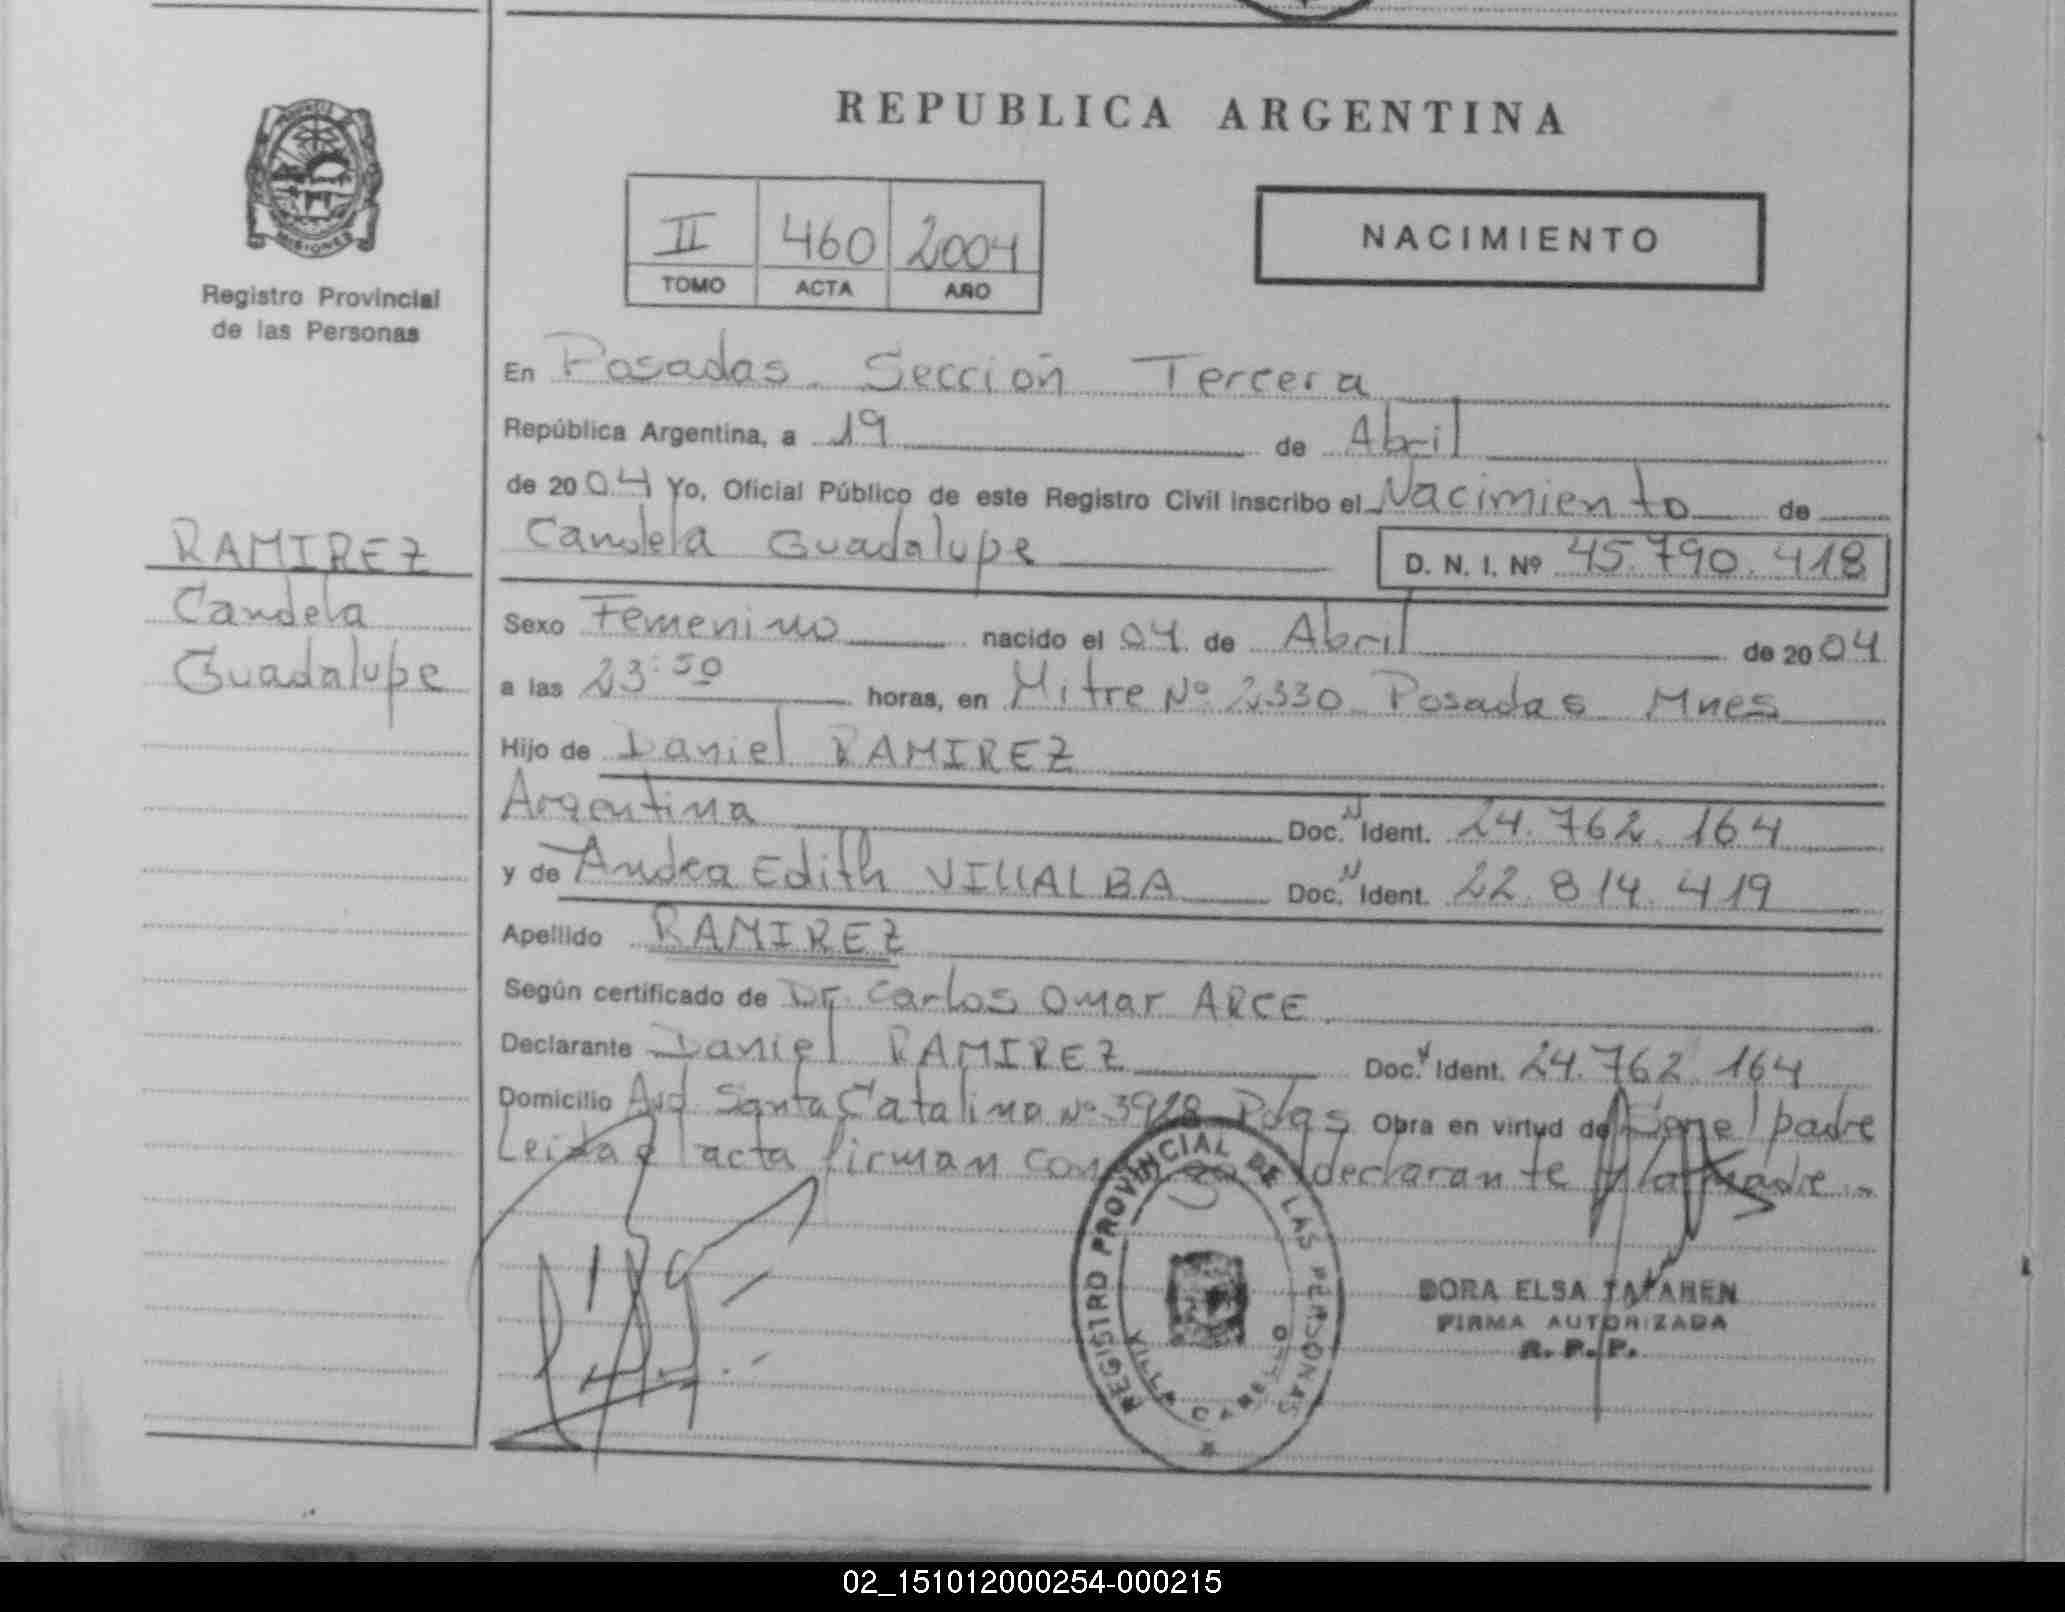 REPUBLICA ARGENTINA
PROVINCIA
MISIONES
Registro Provincial
de las Personas
II 460 2004
TOMO ACTA AÑO
NACIMIENTO
En Posadas Sección Tercera
República Argentina, a 19 de Abril
de 2004 Yo, Oficial Público de este Registro Civil inscribo el Nacimiento de
Candela Guadalupe D. N. I. Nº 45.790.418
RAMIREZ
Candela
Guadalupe
Sexo Femenino nacido el 04 de Abril de 2004
a las 23:50 horas, en Mitre Nº 2330 Posadas Mnes
Hijo de Daniel RAMIREZ
Argentina Doc. N Ident. 24.762.164
y de Andrea Edith VILLALBA Doc. N Ident. 22.814.419
Apellido RAMIREZ
Según certificado de Dr. Carlos Omar ARCE
Declarante Daniel RAMIREZ Doc. N Ident. 24.762.164
Domicilio Avd. Santa Catalina Nº 3928 Pdas Obra en virtud de Ser el padre
Leida el acta firman el declarante y la madre.-
REGISTRO PROVINCIAL DE LAS PERSONAS
VILLA CABELLO
DORA ELSA
FIRMA AUTORIZADA
R. P. P.
02_151012000254-000215